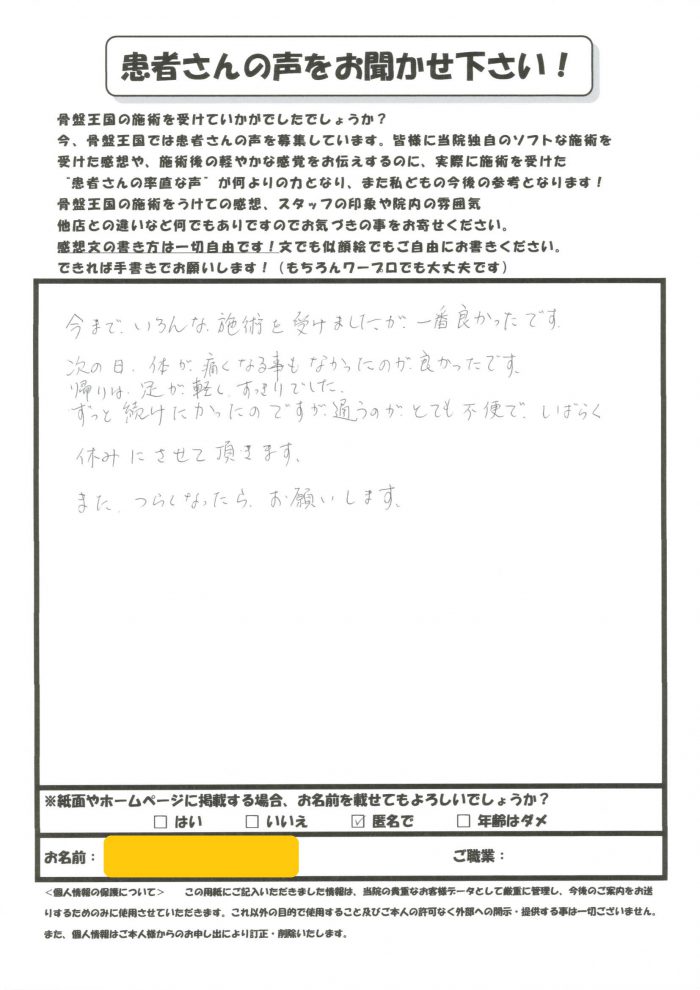 患者さんの声をお聞かせ下さい！
骨盤王国の施術を受けていかがでしたでしょうか？
今、骨盤王国では患者さんの声を募集しています。皆様に当院独自のソフトな施術を
受けた感想や、施術後の軽やかな感覚をお伝えするのに、実際に施術を受けた
"患者さんの率直な声"が何よりの力となり、また私どもの今後の参考となります！
骨盤王国の施術をうけての感想、スタッフの印象や院内の雰囲気
他店との違いなど何でもありですのでお気づきの事をお寄せください。
感想文の書き方は一切自由です！文でも似顔絵でもご自由にお書きください。
できれば手書きでお願いします！（もちろんワープロでも大丈夫です）
今まで、いろんな施術を受けましたが、一番良かったです。
次の日、体が、痛くなる事もなかったのが、良かったです。
帰りは、足が、軽く、すっきりでした。
ずっと続けたかったのですが、通うのが、とても不便で、しばらく
休みにさせて頂きます。
また、つらくなったら、お願いします。
※紙面やホームページに掲載する場合、お名前を載せてもよろしいでしょうか？
□ はい □ いいえ ☑ 匿名で □ 年齢はダメ
お名前： ご職業：
＜個人情報の保護について＞ この用紙にご記入いただきました情報は、当院の貴重なお客様データとして厳重に管理し、今後のご案内をお送
りするためのみに使用させていただきます。これ以外の目的で使用すること及びご本人の許可なく外部への開示・提供する事は一切ございません。
また、個人情報はご本人様からのお申し出により訂正・削除いたします。